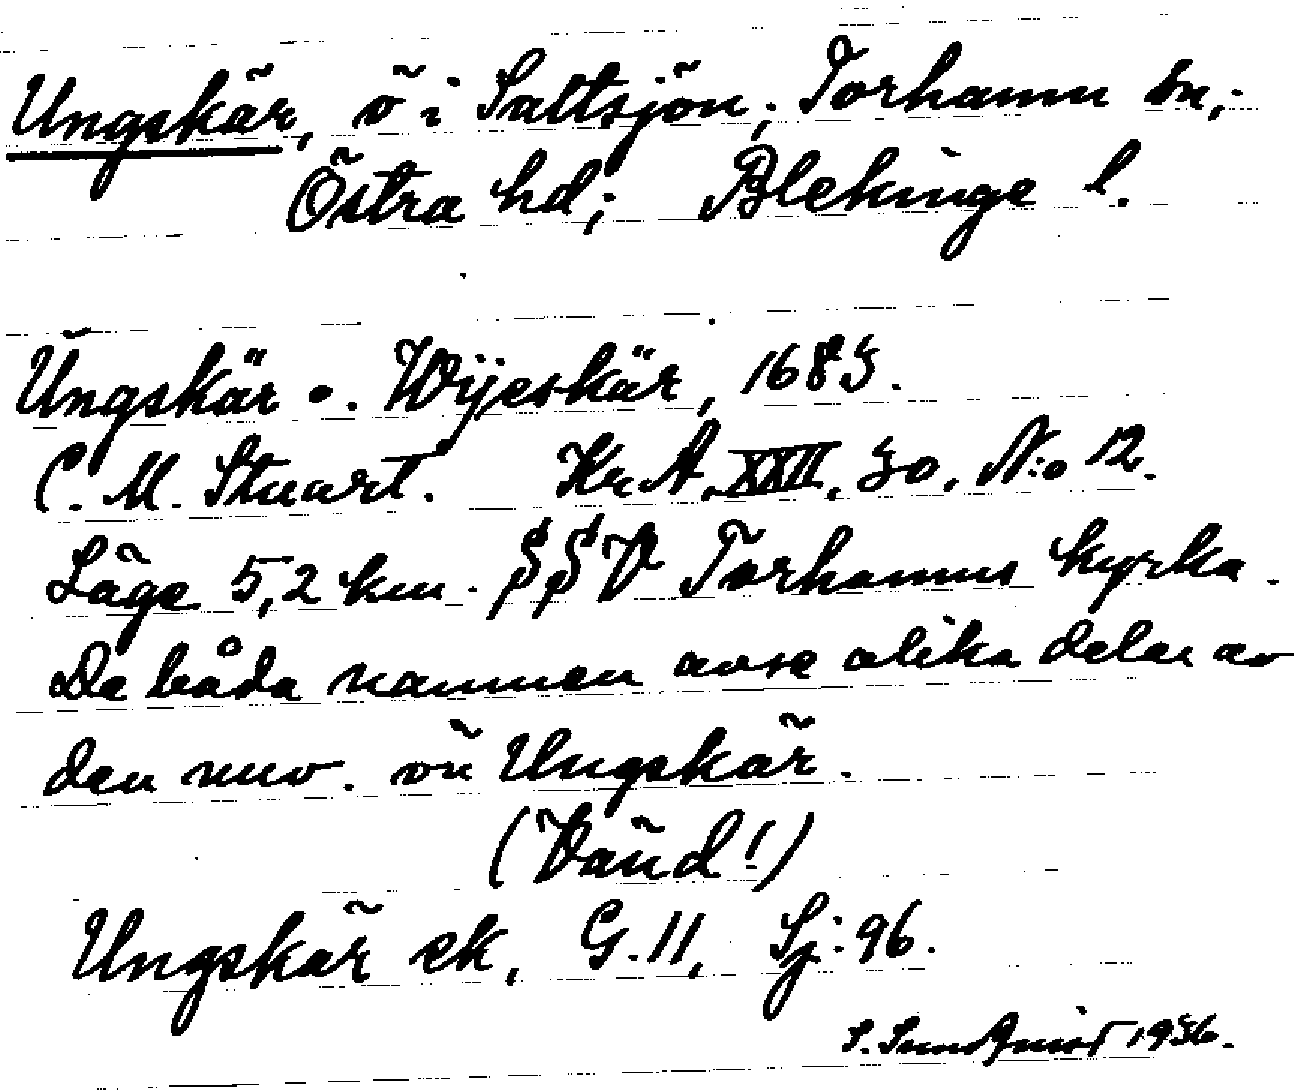 Ungskär, ö i Saltsjön; Torhamn sn,
Östra hd; Blekinge l.
Ungskär o. Wijeskär, 1683.
C. M. Stuart. Kr A, XXII, 30, N:o 12.
Läge 5,2 km. SSV Torhamns kyrka.
De båda namnen avse olika delar av
den nuv. ön Ungskär.
(Vänd!)
Ungskär ek, G. 11, Sj: 96.
S. Sundquist 1936.